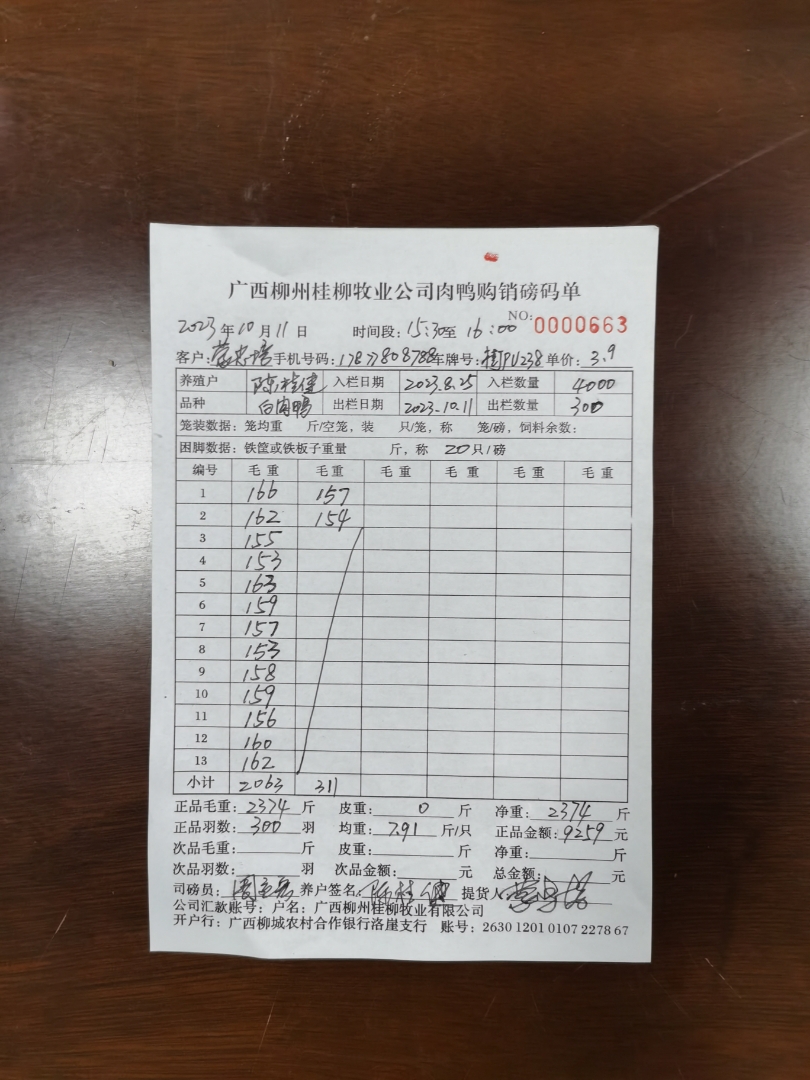 广西柳州桂柳牧业公司肉鸭购销磅码单
NO: 0000663
2023年10月11日 时间段: 15:30至 16:00
客户: 手机号码: 17877808788 车牌号: 桂PU238 单价: 3.9
养殖户 陈桂健 入栏日期 2023.8.25 入栏数量 4000
品种 白肉鸭 出栏日期 2023.10.11 出栏数量 300
笼装数据: 笼均重 斤/空笼, 装 只/笼, 称 笼/磅, 饲料余数:
困脚数据: 铁筐或铁板子重量 斤, 称 20只/磅
编号 毛重 毛重 毛重 毛重 毛重 毛重
1 166 157
2 162 154
3 155
4 153
5 163
6 159
7 157
8 153
9 158
10 159
11 156
12 160
13 162
小计 2063 311
正品毛重: 2374 斤 皮重: 0 斤 净重: 2374 斤
正品羽数: 300 羽 均重: 7.91 斤/只 正品金额: 9259 元
次品毛重: 斤 皮重: 斤 净重: 斤
次品羽数: 羽 次品金额: 元 总金额: 元
司磅员: 养户签名: 陈桂健 提货人
公司汇款账号: 户名: 广西柳州桂柳牧业有限公司
开户行: 广西柳城农村合作银行洛崖支行 账号: 2630 1201 0107 2278 67